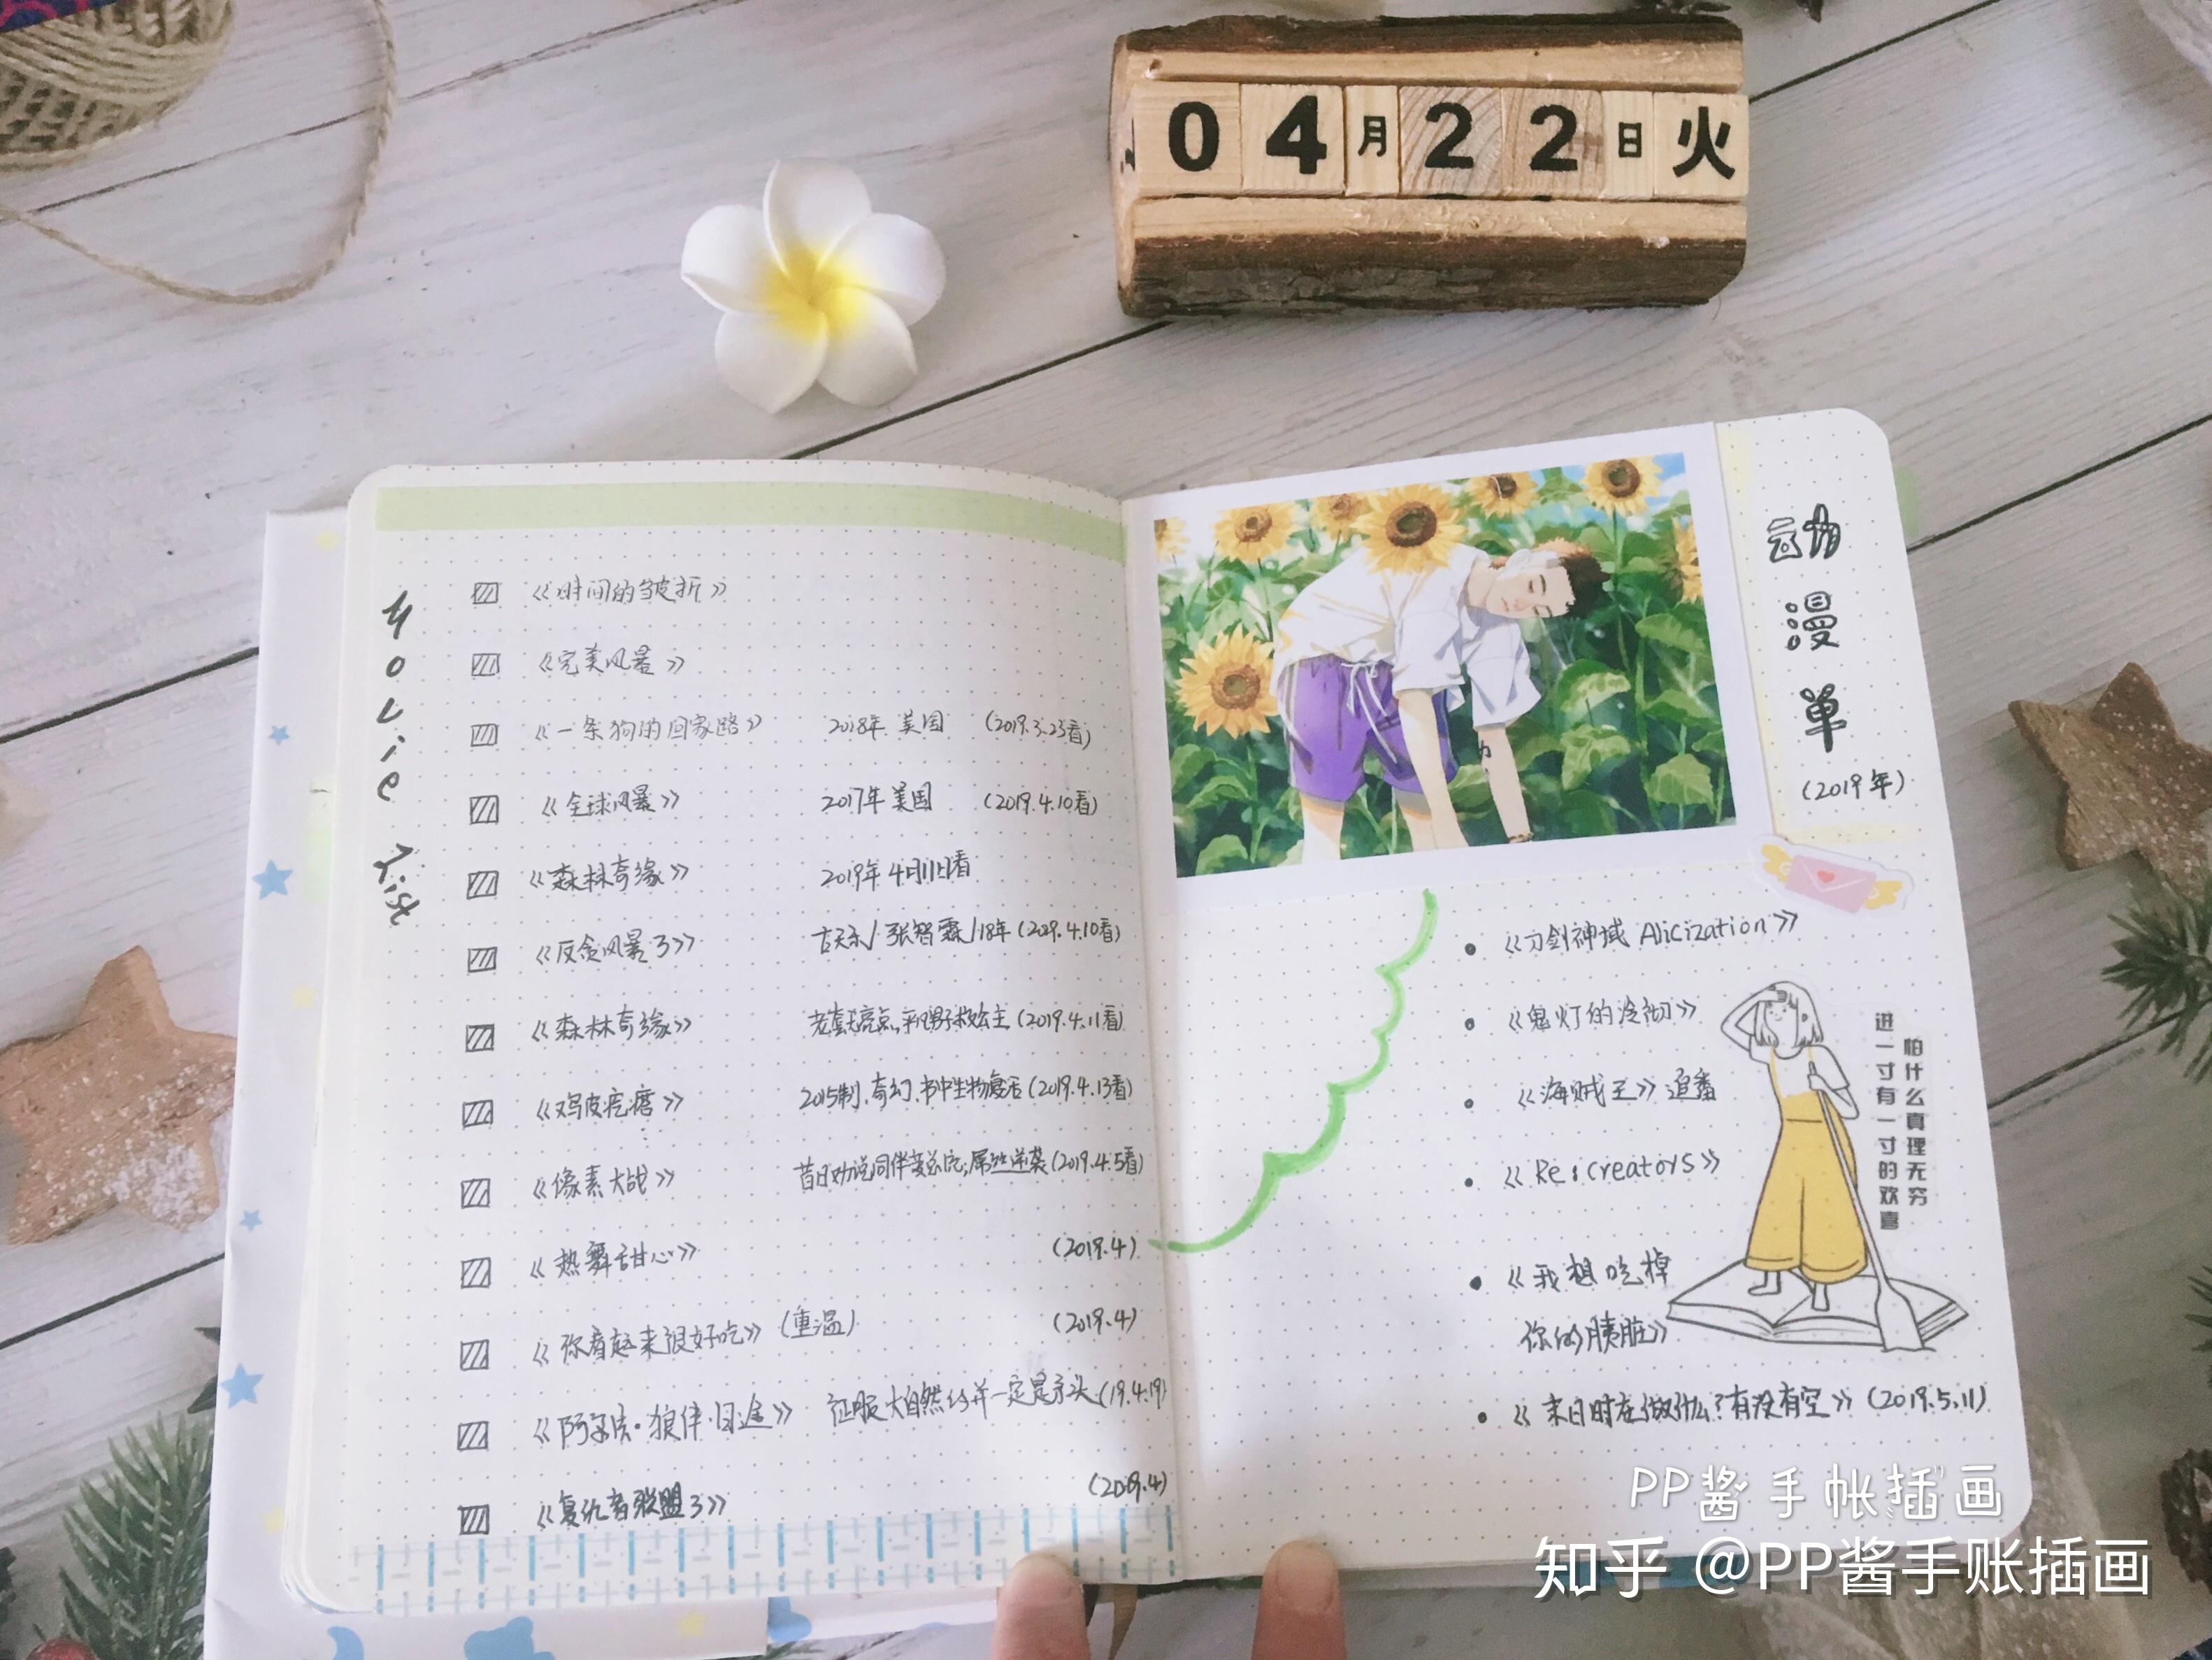 04月22日 火
Movie List
《时间的皱折》
《完美风暴》
《一条狗的回家路》 2018年 美国 (2019.3.23看)
《全球风暴》 2017年 美国 (2019.4.10看)
《森林奇缘》 2019年4月11日看
《反贪风暴3》 古天乐/张智霖/18年(2019.4.10看)
《森林奇缘》 老套无亮点,平凡男子救公主(2019.4.11看)
《鸡皮疙瘩》 2015制.奇幻.书中生物复活(2019.4.13看)
《像素大战》 昔日劝说同伴变总统,屌丝逆袭(2019.4.5看)
《热舞甜心》 (2019.4)
《你看起来很好吃》(重温) (2019.4)
《阿尔法·狼伴归途》 征服大自然的并一定是承头(19.4.19)
《复仇者联盟3》 (2019.4)
动漫单
(2019年)
《刀剑神域 Alicization》
《鬼灯的冷彻》
《海贼王》追番
《Re:Creators》
《我想吃掉
你的胰脏》
《末日时在做什么?有没有空》(2019.5.11)
怕什么真理无穷
进一寸有一寸的欢喜
PP酱手帐插画
知乎 @PP酱手账插画